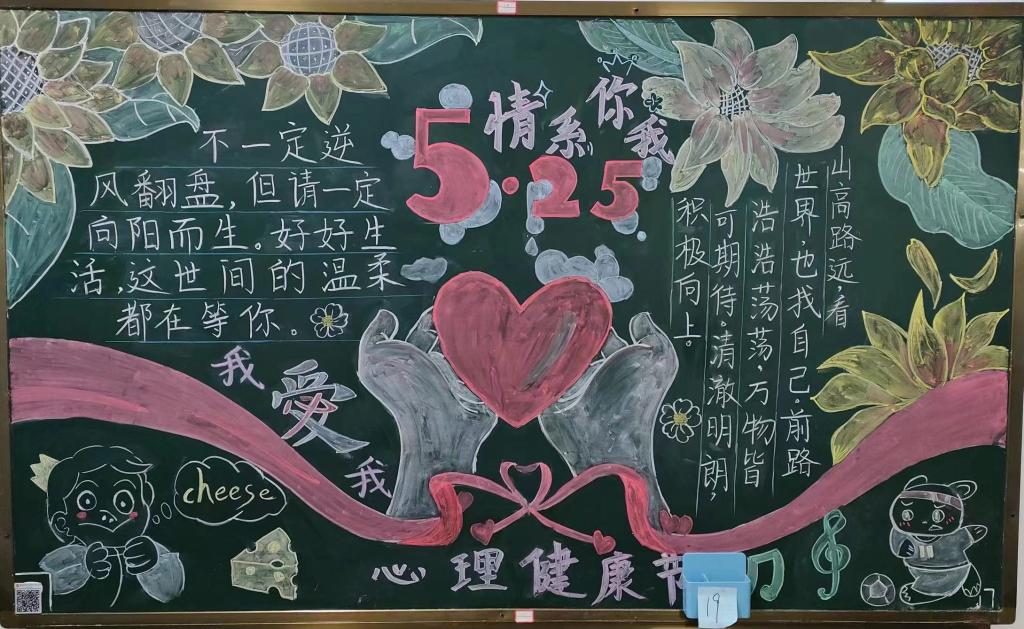 5·25
情系你我
不一定逆
风翻盘,但请一定
向阳而生。好好生
活,这世间的温柔
都在等你。
山高路远,看
世界,也我自己.前路
浩浩荡荡,万物皆
可期待。清澈明朗,
积极向上。
我爱我
cheese
心理健康节
19